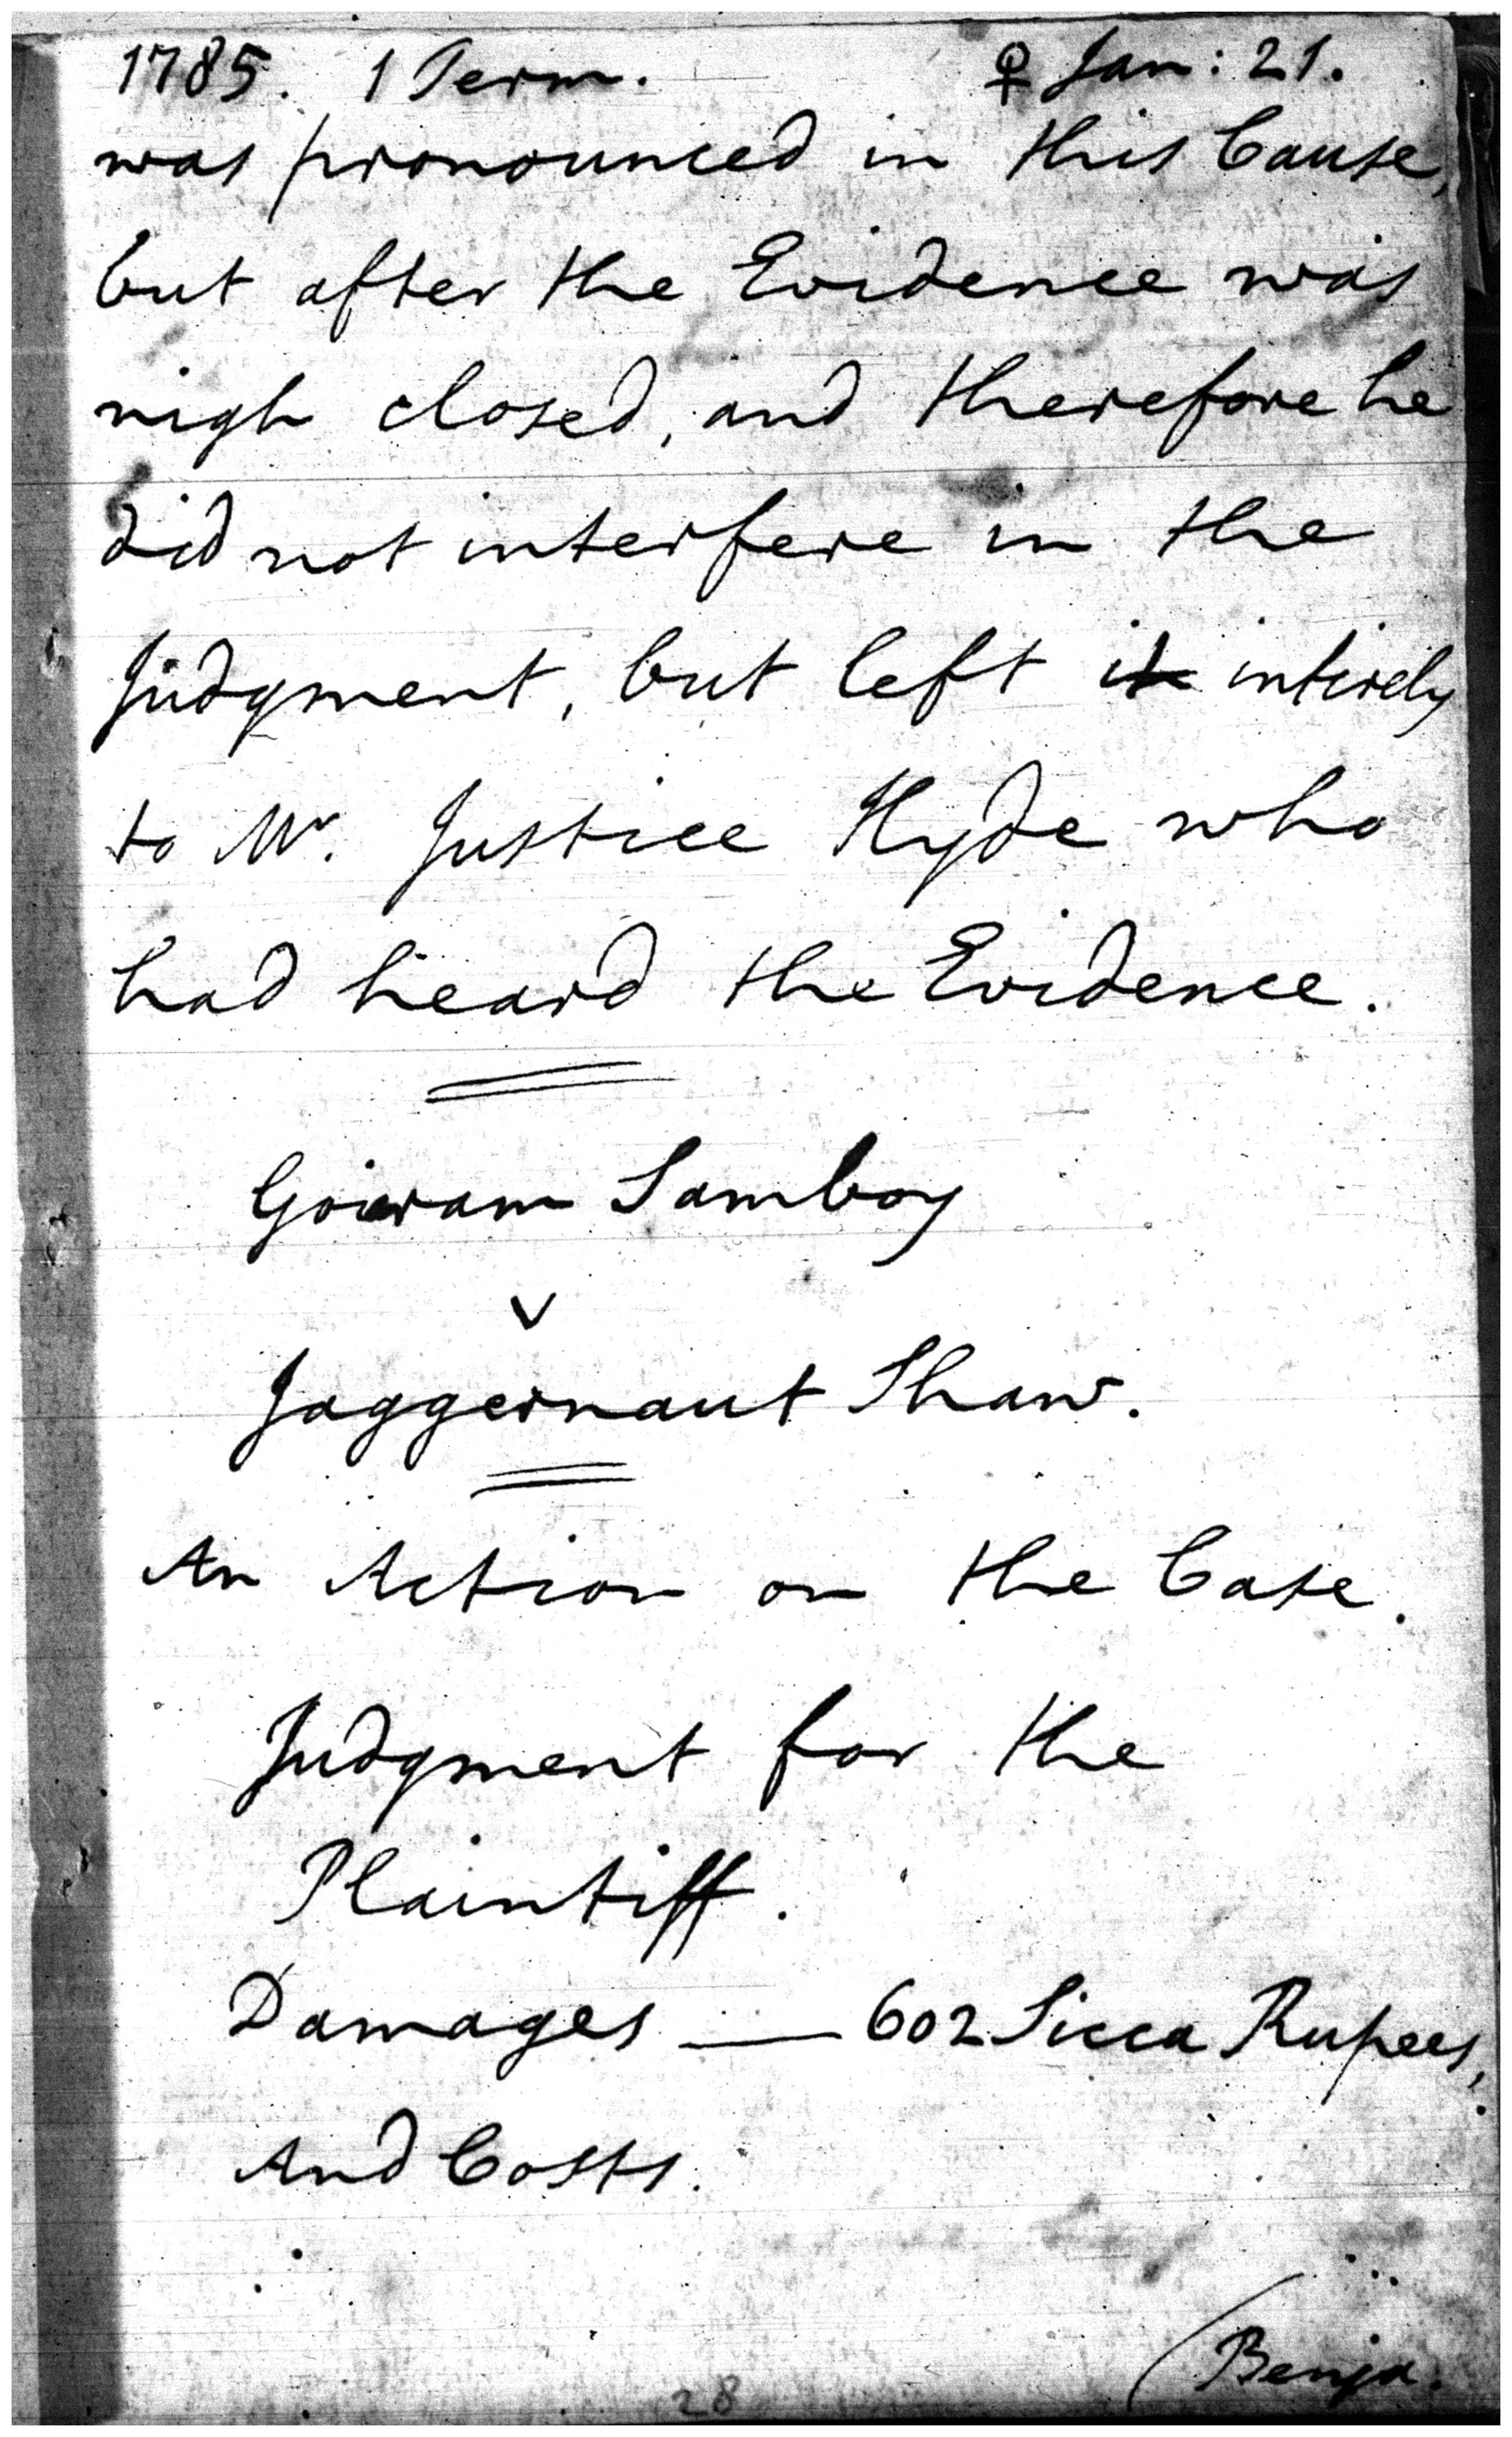 1785. 1 Term. ♀ Jan: 21.
was pronounced in this Cause,
but after the Evidence was
nigh closed, and therefore he
did not interfere in the
Judgment, but left it intirely
to Mr. Justice Hyde who
had heard the Evidence.
Samboy
v
Jaggernaut Shaw.
An Action on the Case.
Judgment for the
Plaintiff.
Damages — 602 Sicca Rupees,
And Costs.
(Benja.
28